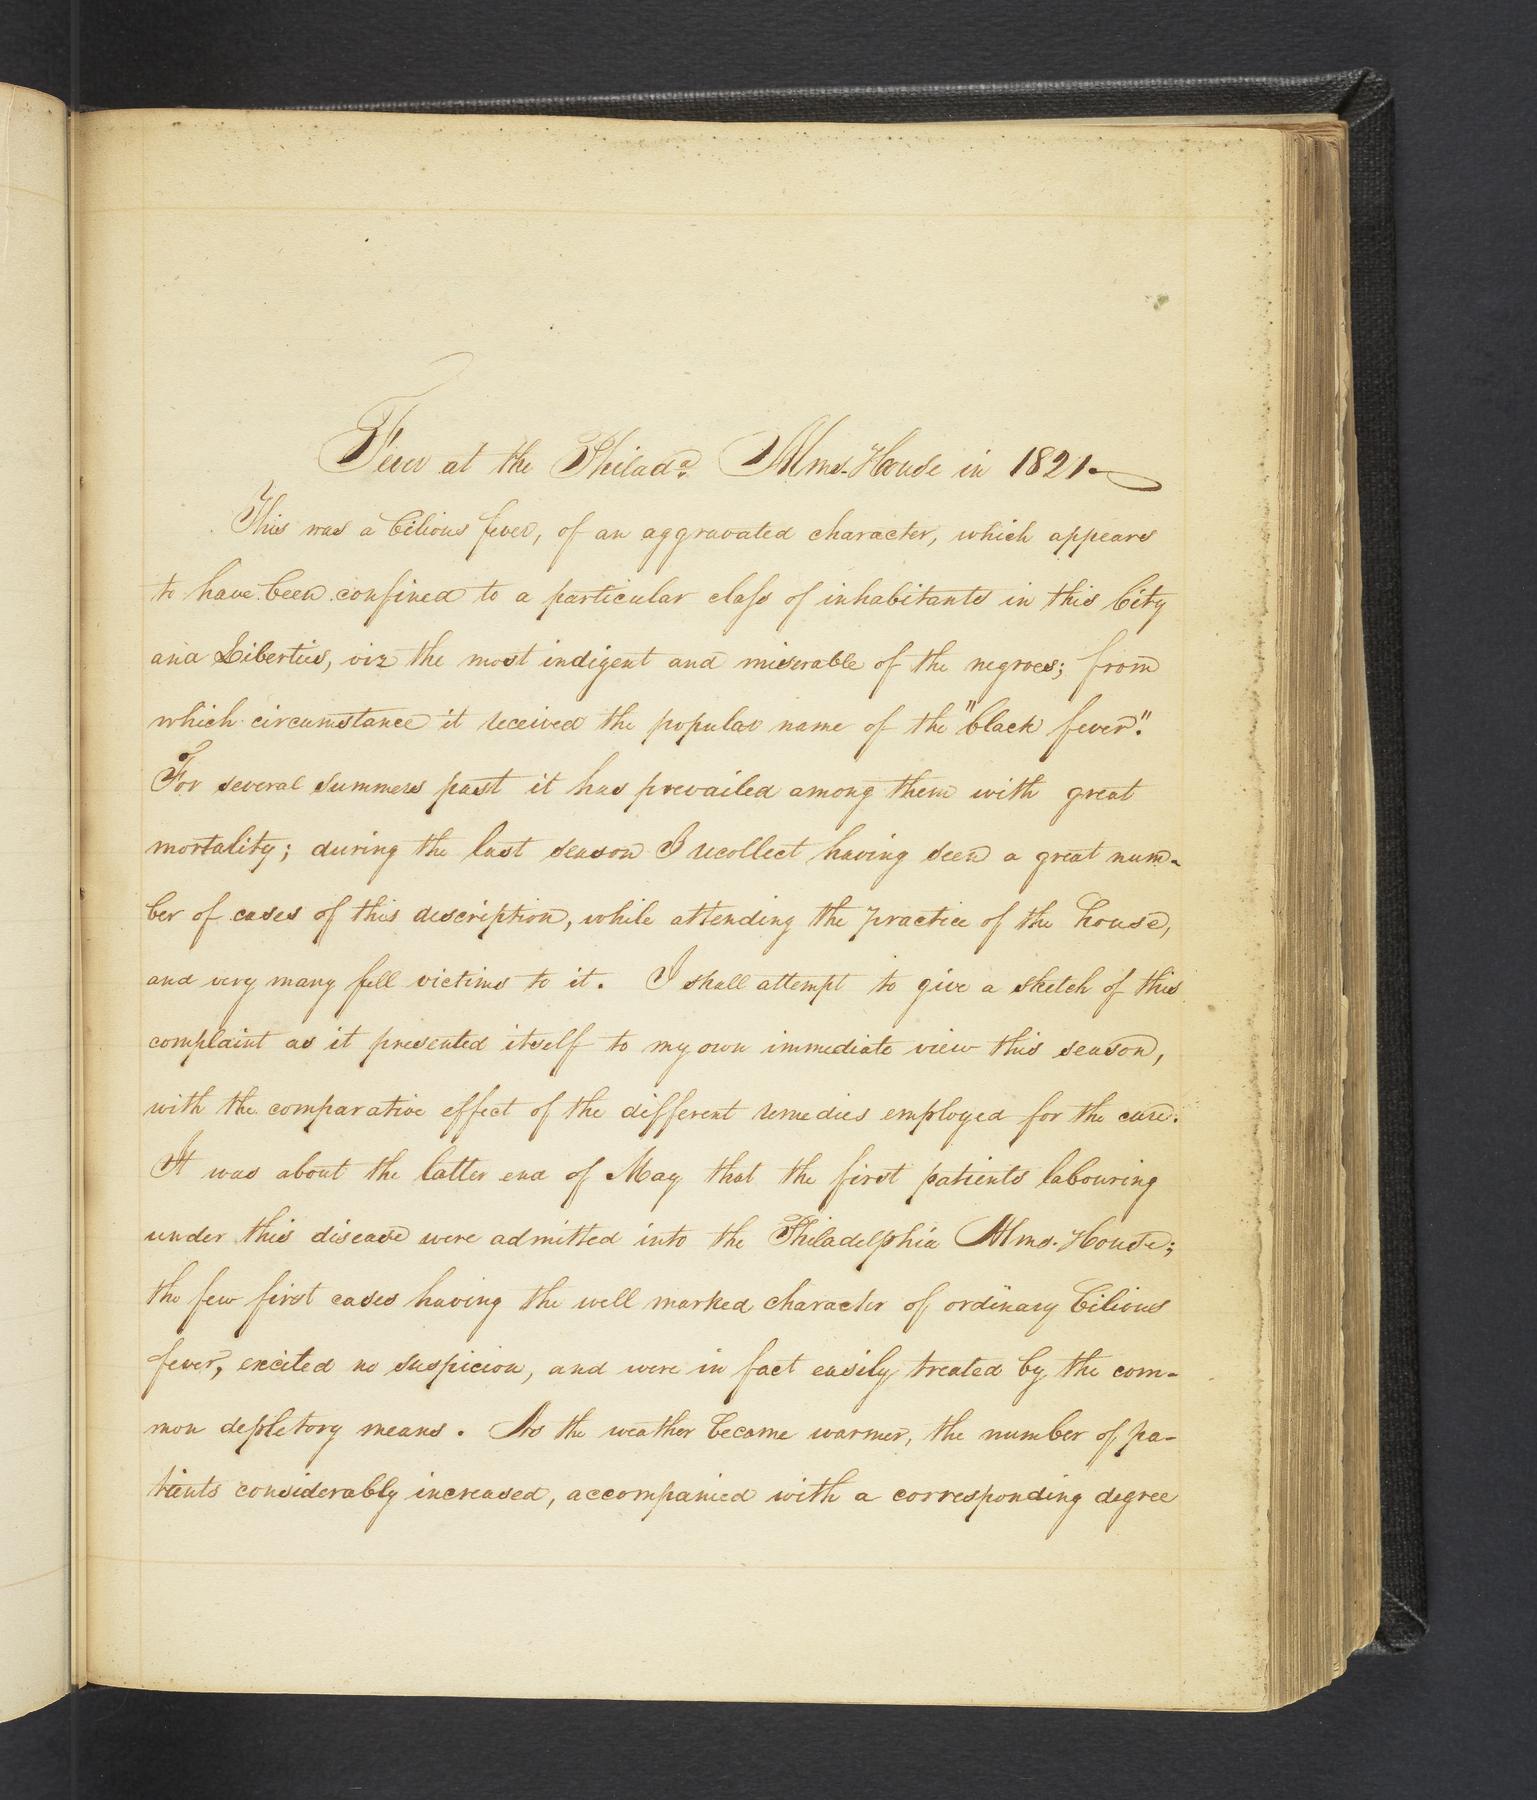 Fever at the Philada. Alms-House in 1821.
This was a bilious fever, of an aggravated character, which appears
to have been confined to a particular class of inhabitants in this City
and Liberties, viz the most indigent and miserable of the negroes; from
which circumstance it received the popular name of the "black fever."
For several summers past it has prevailed among them with great
mortality; during the last season I recollect having seen a great num-
ber of cases of this description, while attending the practice of the house,
and very many fell victims to it. I shall attempt to give a sketch of this
complaint as it presented itself to my own immediate view this season,
with the comparative effect of the different remedies employed for the cure.
It was about the latter end of May that the first patients labouring
under this disease were admitted into the Philadelphia Alms-House;
the few first cases having the well marked character of ordinary bilious
fever, excited no suspicion, and were in fact easily treated by the com-
mon depletory means. As the weather became warmer, the number of pa-
tients considerably increased, accompanied with a corresponding degree